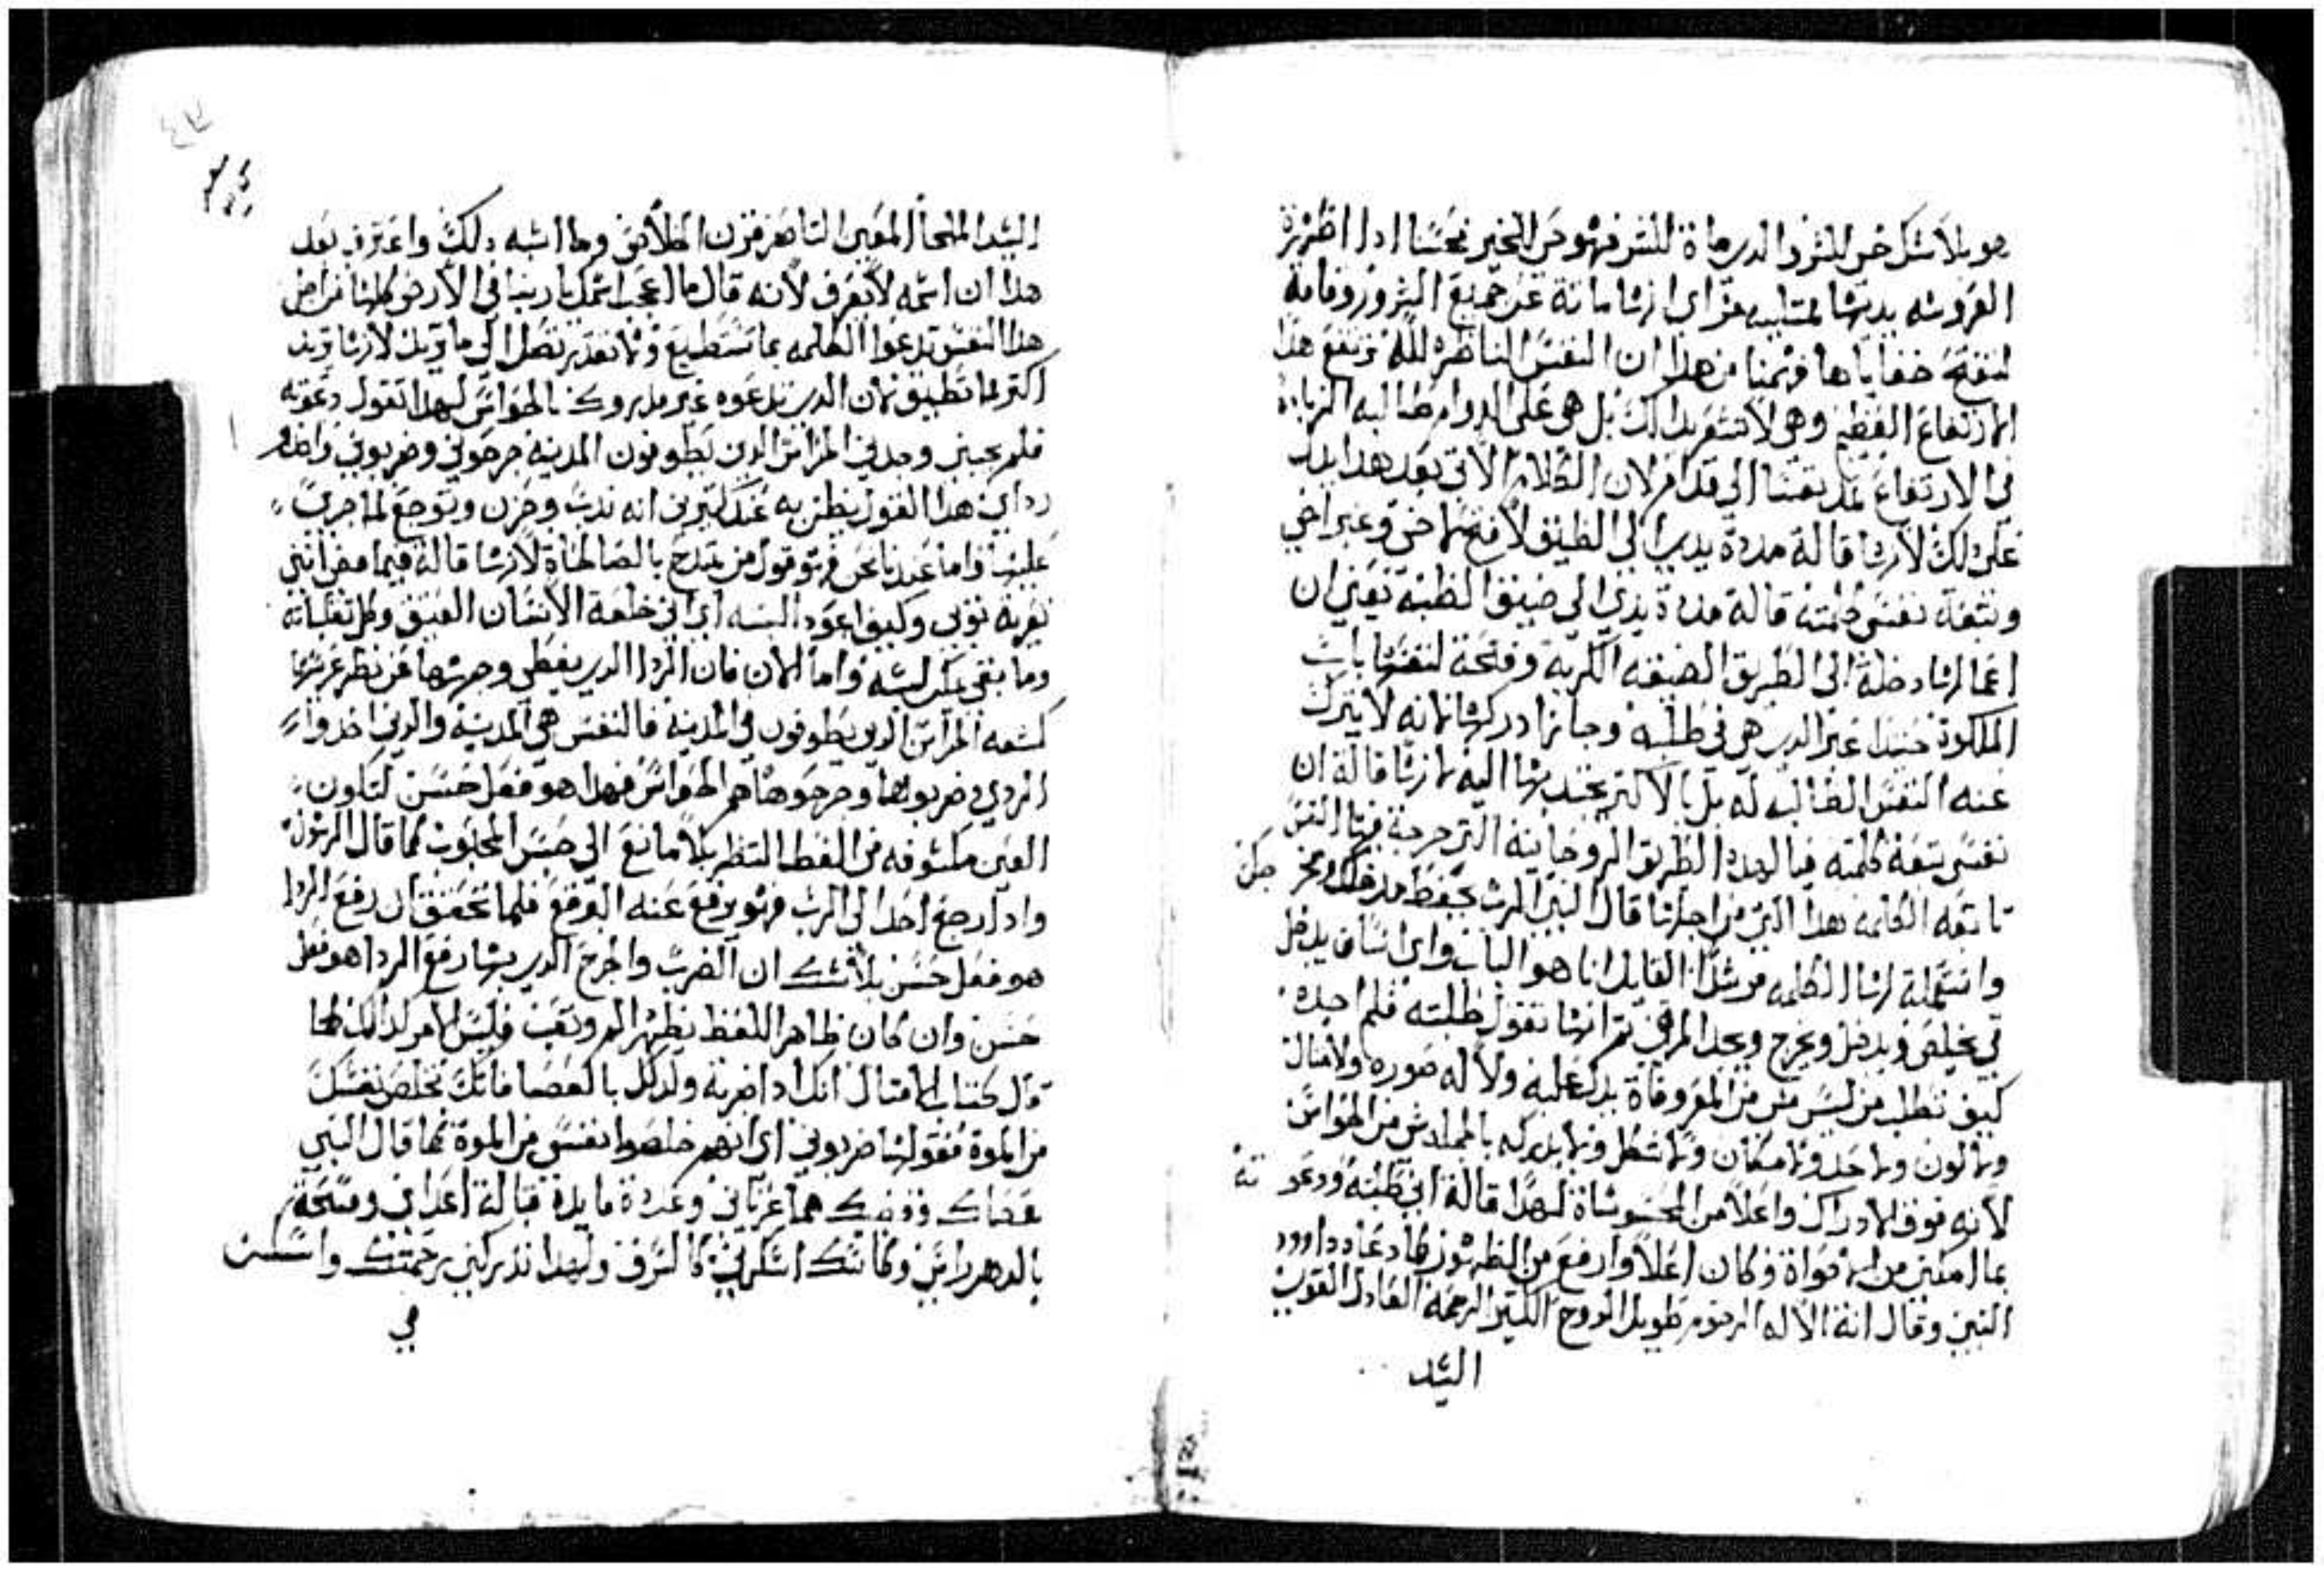 هو بلا شك حي للشر والدي ماة للشر فهو حي للخير فحسنا ادا اظهرة
العروسه يديها ای انها مايتة عن جميع الشرور وقامة
لتفتح هذا ان النفس الناظره لله ترتفع هذا
الارتفاع العظيم وهي لا تشعر بدالك بل هي علي الدوام طالبه الزيادة
في الارتفاع الي قدام لان الكلام الاتي بعد هدا يدل
علي دلك لانها قالة مددة يدي الي الضيق لافتح لاخي وعبر اخي
وتبعة نفسي كلمته قالة مددة يدي الي ضيق تعني ان
اعمالها دخلة الي الطريق الضيقه الكربه وفتحة لنفسها باب
الملكوة حينيدا عبر الدي هي في طلبه وجاز ادركها لانه لا يترك
عنه النفس الطالبه له بل بالاكتر يجتدبها اليه لانها قالة ان
نفسي تبعة كلمته فيا لهدا الطريق الروحانيه التي خرجة فيها النفس
تابعه الكلمه هدا التي من اجلها قال النبي الرب يحفظ مدخلك ومخرجك
واستعملة لها الكلمه مرشدا القايل انا هو الباب واي انسان يدخل
بي يخلص ويدخل ويخرج ويجد المرعي تم انها تقول طلبته فلم اجده
كيف تطلب من ليس شي من المعروفاة يدل عليه ولا له صوره ولا متال
ولا لون ولا حد ولا مكان ولا شكل ولا يدركه الحواس
لانه فوق الادراك واعلا من المحسوساة لهدا قالة اني طلبته ودعوته
بما امكني من الاصواة فكان اعلا وارفع من الظهور كما دعاه داوود
النبي وقال انه الاله الرحوم طويل الروح الكتير الرحمه العادل القوي
السيد
السيد الملجأ المعين الناصر قرن الخلاص وما اشبه دلك واعترف بعد
هدا ان اسمه لا يعرف لانه قال ما اعجب اسمك يا ربنا في الارض كلها فمن اجل
هدا النفس تدعوا الكلمه بما تستطيع ولا تقدر تصل الي ما تريد لانها تريد
اكتر مما تطيق لان الدي تدعوه غير مدروك بالحواس لهدا تقول دعوته
فلم يجبني وجدني الحراس الدين يطوفون المدينه جرحوني وضربوني واخدوا
رداي هدا القول يظن به عند كتيرين انه ندب وحزن وتوجع لما جري
عليها واما عندنا نحن فهو قول من يتمدح بالصالحاة لانها قالة فيما مضي انني
تعرية توبي وكيف اعود البسه اي اني خلعة الانسان العتيق وكل تقلباته
وما بقي يمكن لبسه واما الان فان الردا الدي يغطي وجهها عن نظر عريسها
كشفه الحراس الدين يطوفون في المدينه فالنفس هي المدينه والدين اخدوا
الردي وضربوها وجرحوها هم الحواس فهدا هو فعل حسن لتكون
العين مكشوفه من الغطا لتنظر بلا مانع الي حسن المحبوب كما قال الرسول
وادا رجع احد الي الرب فهو يرفع عنه البرقع فلما تحقق ان رفع الردا
هو فعل حسن بلا شك ان الضرب والجرح الدي بها رفع الردا هو فعل
حسن وان كان ظاهر اللفظ يظهر الم وتعب فليس الامر كدالك كما
قال كتاب الامتال انك ادا ضربة ولدك بالعصا فانك تخلص نفسك
من الموة فقولها ضربوني اي انهم خلصوا نفسي من الموة كما قال النبي
عصاك وقضيبك هما عزياني وعددة مايدة قبالة اعداي ومسحة
بالدهن راسي وكاسك اسكرني كالصرف ولهدا تدركني رحمتك واسكن
في